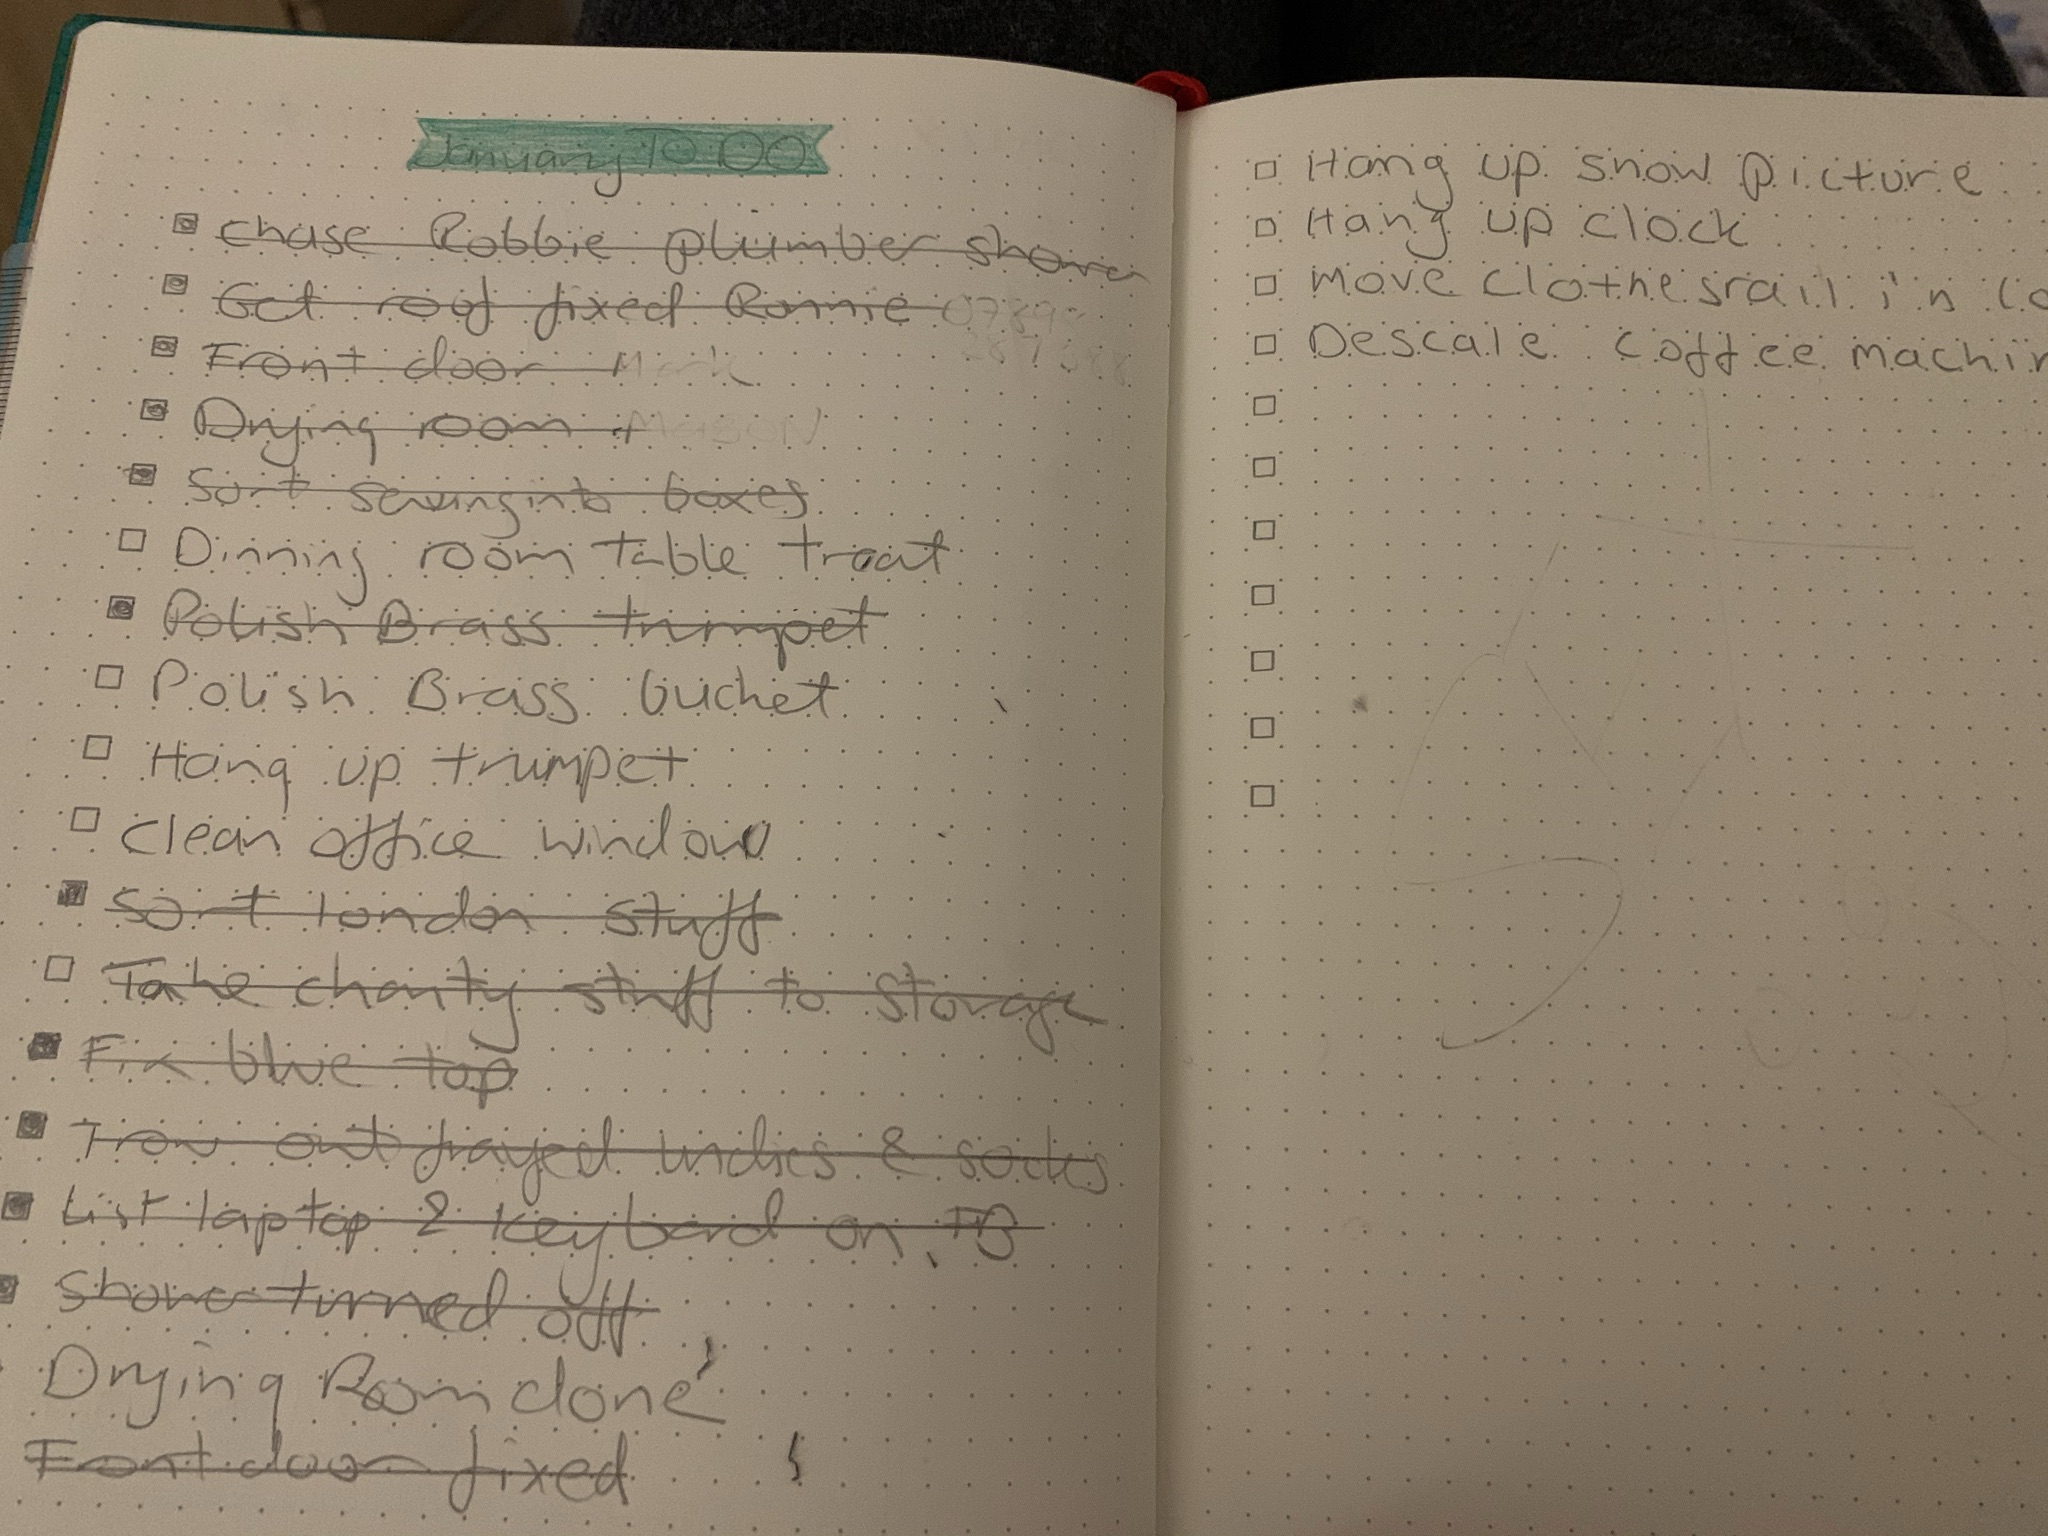 January TO DO
Chase Robbie plumber shower
Get roof fixed Ronnie 0789
Front door Mark
Drying room +
Sort sewing into boxes
Dinning room Table treat
Polish Brass trumpet
Polish Brass bucket
Hang up trumpet
Clean office window
Sort london stuff
Take charity stuff to storage
Fix blue top
Trow out frayed undies & socks
List laptop & keyboard on FB
Shower turned off
Drying Room done
Front door fixed
Hang up snow picture
Hang up clock
Move clothesrail in
Descale coffee machin